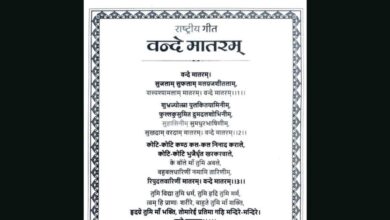 राष्ट्रीय गीत
वन्दे मातरम्
वन्दे मातरम्।
सुजलाम् सुफलाम् मलयजशीतलाम्,
शस्यश्यामलाम् मातरम्। वन्दे मातरम्।।1।।
शुभ्रज्योत्स्ना पुलकितयामिनीम्,
फुल्लकुसुमित द्रुमदलशोभिनीम्,
सुहासिनीम् सुमधुरभाषिणीम्,
सुखदाम् वरदाम् मातरम्। वन्दे मातरम्।।2।।
कोटि-कोटि कण्ठ कल-कल निनाद कराले,
कोटि-कोटि भुजैर्धृत खरकरवाले,
के बोले माँ तुमि अबले,
बहुबलधारिणीं नमामि तारिणीम्,
रिपुदलवारिणीं मातरम्। वन्दे मातरम्।।3।।
तुमि विद्या तुमि धर्म, तुमि हृदि तुमि मर्म,
त्वम् हि प्राणाः शरीरे, बाहुते तुमि माँ शक्ति,
हृदये तुमि माँ भक्ति, तोमारेई प्रतिमा गड़ि मन्दिरे-मन्दिरे।